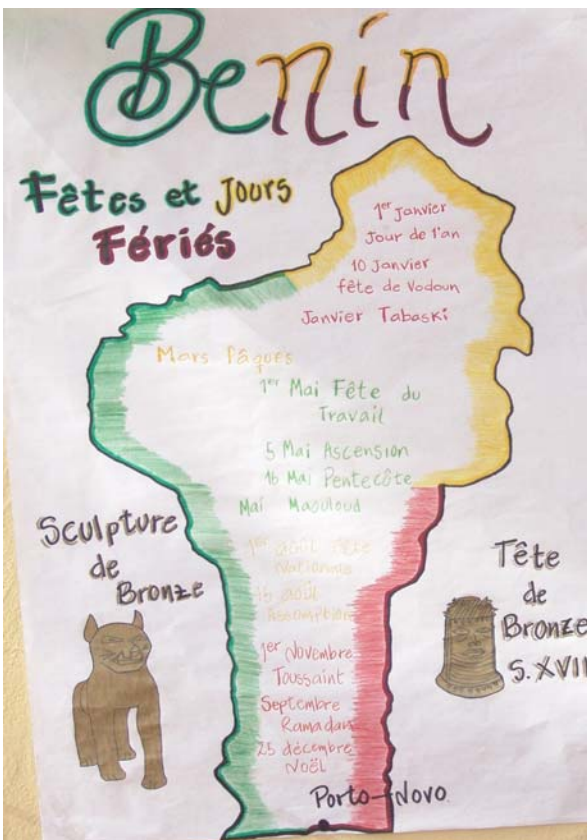 Benin
Fêtes et Jours
Fériés
1er Janvier
Jour de l'an
10 Janvier
fête de Vodoun
Janvier Tabaski
Mars Pâques
1er Mai Fête du
Travail
5 Mai Ascension
16 Mai Pentecôte
Mai Maouloud
1er août Fête
Nationale
15 août
Assomption
1er Novembre
Toussaint
Septembre
Ramadan
25 décembre
Noël
Porto-Novo
Sculpture
de
Bronze
Tête
de
Bronze
S. XVII